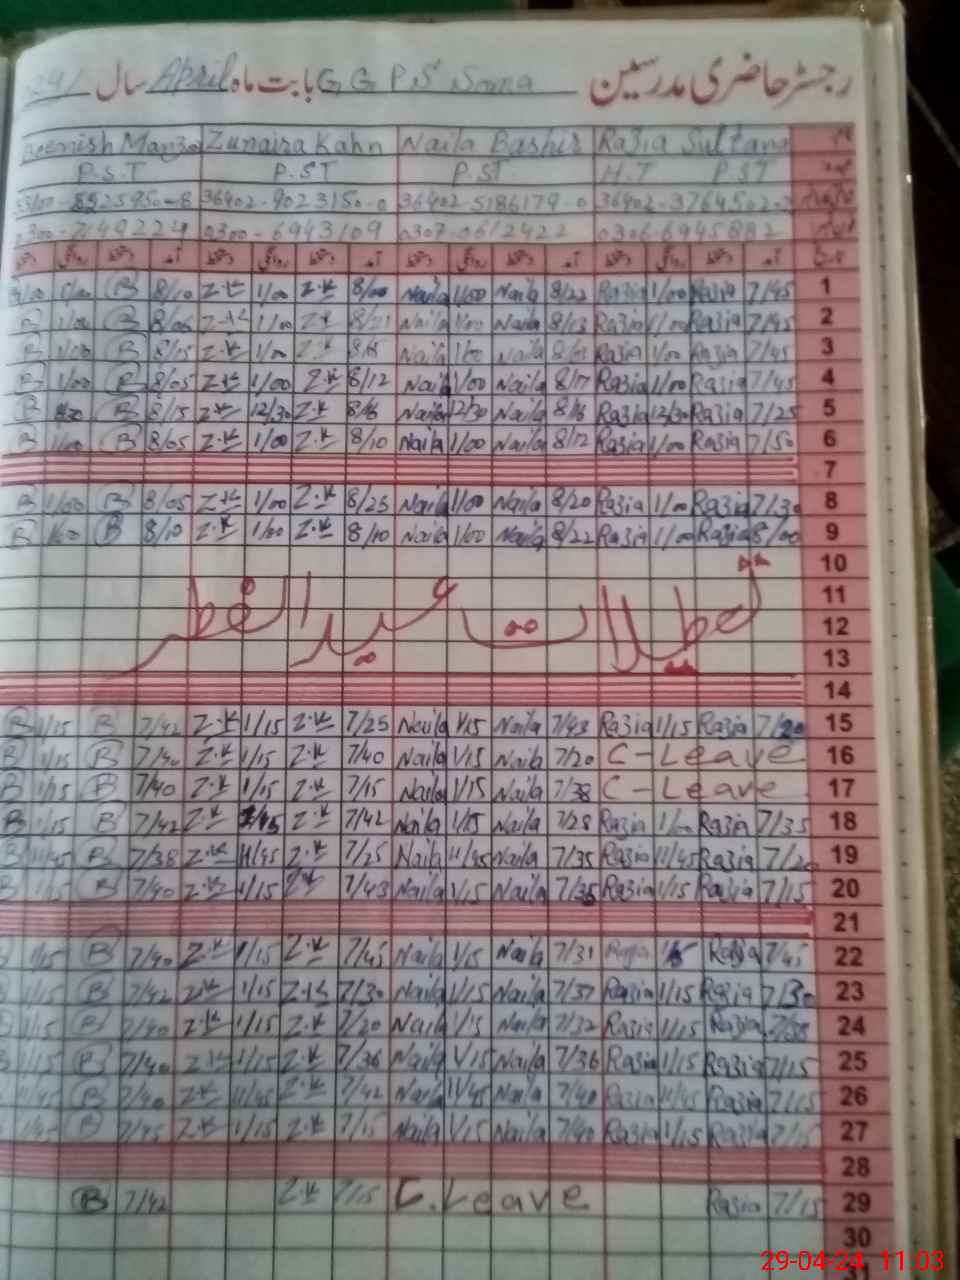 رجسٹر حاضری مدرسین G G P S Soma بابت ماہ April سال
Zunaira Kahn Naila Bashir Razia Sultana
P.S.T P.ST P.ST H.T P.ST
36402-9023150-0 36402-5186179-0
0300-6943109 0307-0612422 0306-6945882
B 8/10 Z.K 1/00 Z.K 8/00 Naila 1/00 Naila 8/22 Razia 1/00 Razia 7/45 1
B 1/00 B 8/05 Z.K 1/00 Z.K 8/21 Naila 1/00 Naila 8/13 Razia 1/00 Razia 7/45 2
B 1/00 B 8/15 Z.K 1/00 Z.K Naila 1/00 Naila Razia 1/00 Razia 7/45 3
B 1/00 B 8/05 Z.K 1/00 Z.K 8/12 Naila 1/00 Naila 8/17 Razia 1/00 Razia 7/45 4
B B 8/15 Z.K 12/30 Z.K 8/16 Naila 12/30 Naila 8/18 Razia 12/30 Razia 7/25 5
B 1/00 B 8/05 Z.K 1/00 Z.K 8/10 Naila 1/00 Naila 8/12 Razia 1/00 Razia 7/50 6
7
B 1/00 B 8/05 Z.K 1/00 Z.K 8/25 Naila 1/00 Naila 8/20 Razia 1/00 Razia 7/30 8
B 1/00 B 8/10 Z.K 1/00 Z.K 8/10 Naila 1/00 Naila 8/22 Razia 1/00 Razia 8/00 9
10
11
تعطیلات عید الفطر 12
13
14
B 1/15 B 7/42 Z.K 1/15 Z.K 7/25 Naila 1/15 Naila 7/43 Razia 1/15 Razia 7/20 15
B 1/15 B 7/40 Z.K 1/15 Z.K 7/40 Naila 1/15 Naila 7/20 C-Leave 16
B 1/15 B 7/40 Z.K 1/15 Z.K 7/15 Naila 1/15 Naila 7/38 C-Leave 17
B 1/15 B 7/42 Z.K Z.K 7/42 Naila 1/15 Naila 7/28 Razia 1/00 Razia 7/35 18
B 11/45 B 7/38 Z.K 11/45 Z.K 7/25 Naila 11/45 Naila 7/35 Razia 11/45 Razia 7/20 19
B 1/15 B 7/40 Z.K 1/15 Z.K 7/43 Naila 1/15 Naila 7/35 Razia 1/15 Razia 7/15 20
21
1/15 B 7/40 Z.K 1/15 Z.K 7/45 Naila 1/15 Naila 7/31 Razia Razia 7/45 22
1/15 B 7/42 Z.K 1/15 Z.K 7/30 Naila 1/15 Naila 7/37 Razia 1/15 Razia 7/30 23
1/15 B 7/40 Z.K 1/15 Z.K 7/20 Naila 1/15 Naila 7/32 Razia 1/15 Razia 24
1/15 B 7/40 Z.K 1/15 Z.K 7/36 Naila 1/15 Naila 7/36 Razia 1/15 Razia 7/15 25
11/45 B 7/40 Z.K 11/45 Z.K 7/42 Naila 11/45 Naila 7/40 Razia 11/45 Razia 7/15 26
B 7/45 Z.K 1/15 Z.K 7/15 Naila 1/15 Naila 7/40 Razia 1/15 Razia 7/15 27
28
B 7/42 Z.K 7/15 C.Leave Razia 7/15 29
30
29-04-24 11:03